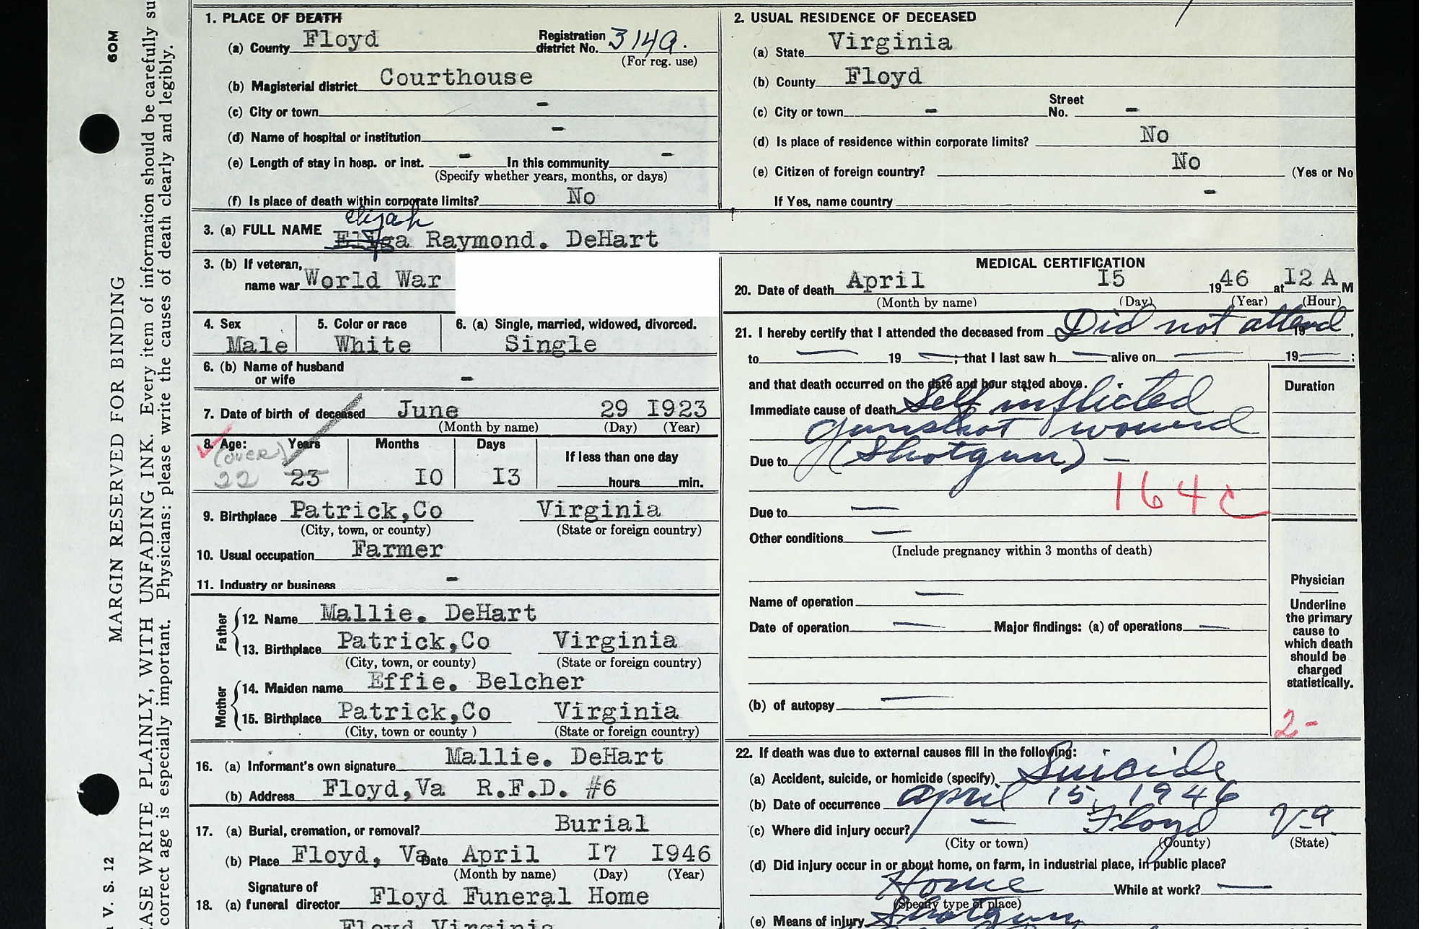 60M
MARGIN RESERVED FOR BINDING
ASE WRITE PLAINLY, WITH UNFADING INK. Every item of information should be carefully su
correct age is especially important. Physicians; please write the causes of death clearly and legibly.
V. S. 12
1. PLACE OF DEATH
(a) County Floyd Registration district No. 314a.
(For reg. use)
(b) Magisterial district Courthouse
(c) City or town -
(d) Name of hospital or institution -
(e) Length of stay in hosp. or inst. - In this community -
(Specify whether years, months, or days)
(f) Is place of death within corporate limits? No
2. USUAL RESIDENCE OF DECEASED
(a) State Virginia
(b) County Floyd
(c) City or town - Street No. -
(d) Is place of residence within corporate limits? No
(e) Citizen of foreign country? No (Yes or No
If Yes, name country -
elijah
3. (a) FULL NAME Raymond. DeHart
3. (b) If veteran, name war World War
4. Sex Male
5. Color or race White
6. (a) Single, married, widowed, divorced. Single
6. (b) Name of husband or wife -
7. Date of birth of deceased June 29 1923
(Month by name) (Day) (Year)
8. Age: Years Months Days If less than one day
(over)
22 23 10 13 hours min.
9. Birthplace Patrick,Co Virginia
(City, town, or county) (State or foreign country)
10. Usual occupation Farmer
11. Industry or business -
Father
12. Name Mallie. DeHart
13. Birthplace Patrick,Co Virginia
(City, town, or county) (State or foreign country)
Mother
14. Maiden name Effie. Belcher
15. Birthplace Patrick,Co Virginia
(City, town or county ) (State or foreign country)
16. (a) Informant's own signature Mallie. DeHart
(b) Address Floyd,Va R.F.D. #6
17. (a) Burial, cremation, or removal? Burial
(b) Place Floyd, Va Date April 17 1946
(Month by name) (Day) (Year)
18. (a) Signature of funeral director Floyd Funeral Home
Floyd Virginia
MEDICAL CERTIFICATION
20. Date of death April 15 1946 at 12 A M
(Month by name) (Day) (Year) (Hour)
21. I hereby certify that I attended the deceased from Did not attend 19
to — 19 —; that I last saw h — alive on — 19 — ;
and that death occurred on the date and hour stated above.
Duration
Immediate cause of death Self inflicted
gunshot wound
Due to (Shotgun) —
164c
Due to —
Other conditions —
(Include pregnancy within 3 months of death)
Name of operation —
Date of operation — Major findings: (a) of operations —
(b) of autopsy —
Physician
Underline
the primary
cause to
which death
should be
charged
statistically.
2-
22. If death was due to external causes fill in the following:
(a) Accident, suicide, or homicide (specify) Suicide
(b) Date of occurrence april 15, 1946
(c) Where did injury occur? — Floyd Va
(City or town) (County) (State)
(d) Did injury occur in or about home, on farm, in industrial place, in public place?
Home While at work? —
(Specify type of place)
(e) Means of injury Shotgun